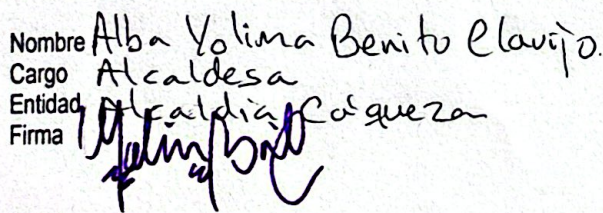 Nombre Alba Yolima Benito Clavijo.
Cargo Alcaldesa
Entidad Alcaldia Cáqueza
Firma Yolima Benito